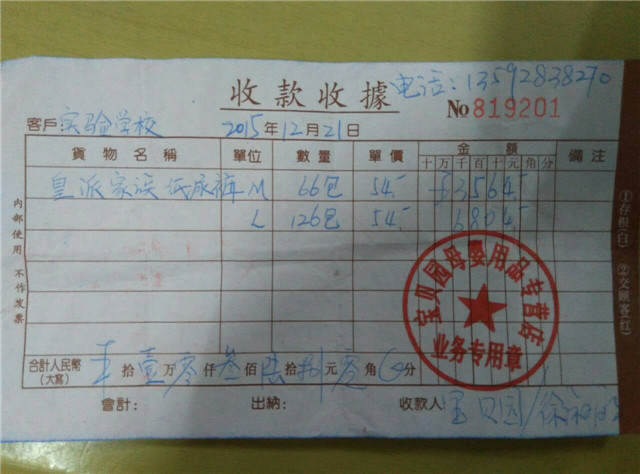 收款收據
电话:13592838270
No 819201
客戶:实验学校 2015年12月21日
貨物名稱 單位 數量 單價 金額 備注
十万千百十元角分
皇派家族纸尿裤 M 66包 54.- 3564.-
L 126包 54.- 6804.-
内部使用 不作发票
①存根(白) ②交顧客(红)
宝贝园母婴用品专营店
业务专用章
合計人民幣(大寫) 拾壹万零仟叁佰陆拾捌元零角 分
會計: 出納: 收款人:宝贝园/徐